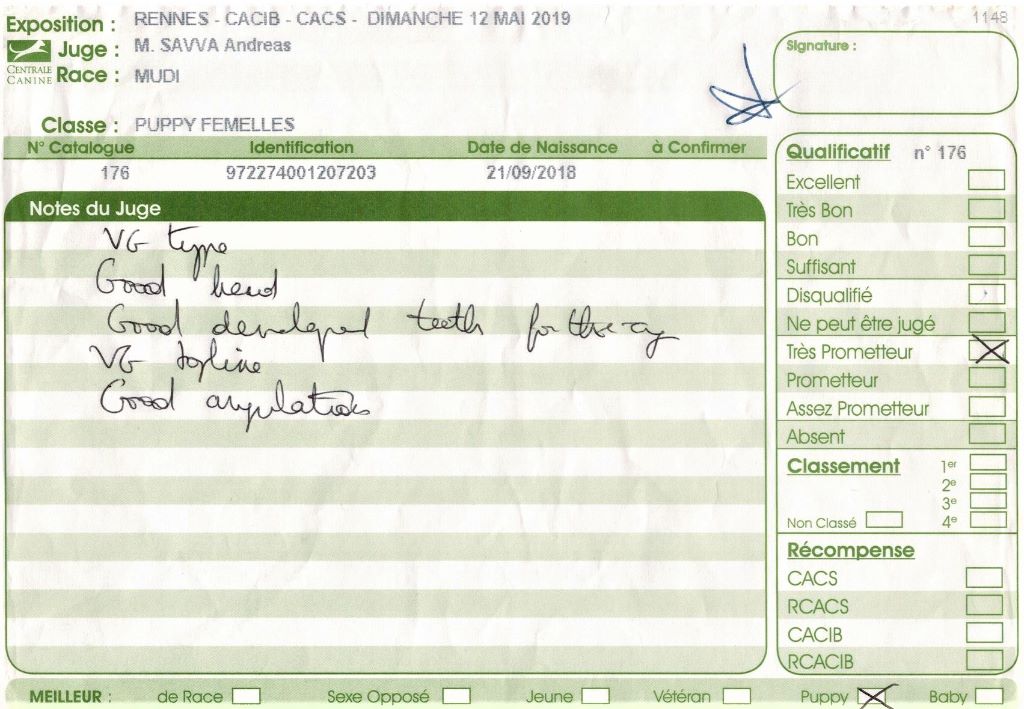 Exposition : RENNES - CACIB - CACS - DIMANCHE 12 MAI 2019
1148
Juge : M. SAVVA Andreas
Signature :
CENTRALE CANINE
Race : MUDI
Classe : PUPPY FEMELLES
N° Catalogue Identification Date de Naissance à Confirmer
176 972274001207203 21/09/2018
Notes du Juge
VG type
Good head
Good developed teeth for the
VG topline
Good angulations
Qualificatif n° 176
Excellent
Très Bon
Bon
Suffisant
Disqualifié
Ne peut être jugé
Très Prometteur
Prometteur
Assez Prometteur
Absent
Classement 1er
2e
3e
Non Classé 4e
Récompense
CACS
RCACS
CACIB
RCACIB
MEILLEUR : de Race Sexe Opposé Jeune Vétéran Puppy Baby